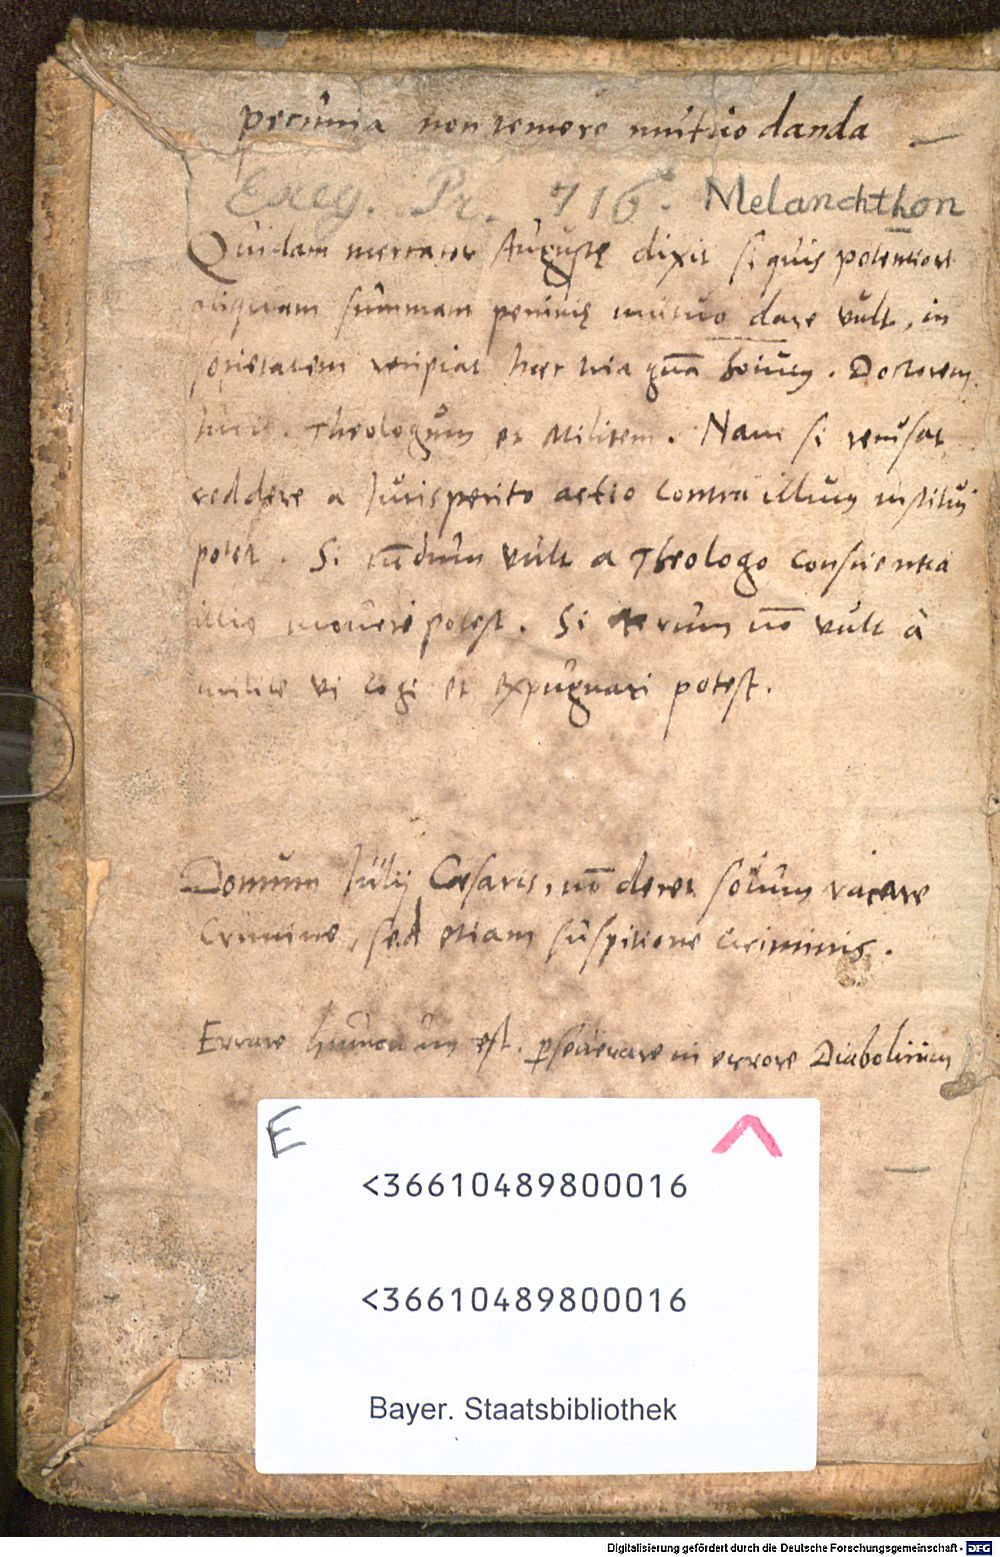 pecunia non temere mutuo danda
Exeg. Pr. 716. Melanchthon
Quidam mercator Augustę dixit si quis potentiori
aliquam summam pecunię mutuo dare vult, in
societatem recipiat hęc tria
Doctorem
Juris. Theologum et Militem. Nam si recusat
reddere a Jurisperito actio contra illum institui
potest. Si vult a Theologo conscientia
illiq moveri potest. Si rerum nō vult à
milite vi cogi et expugnari potest.
Domum Julij Cæsaris, nō decet solum vacare
Crimine, sed etiam suspitione criminis.
Errare humanum est. pseverare in errore Diabolicum
E
<36610489800016
<36610489800016
Bayer. Staatsbibliothek
Digitalisierung gefördert durch die Deutsche Forschungsgemeinschaft - DFG